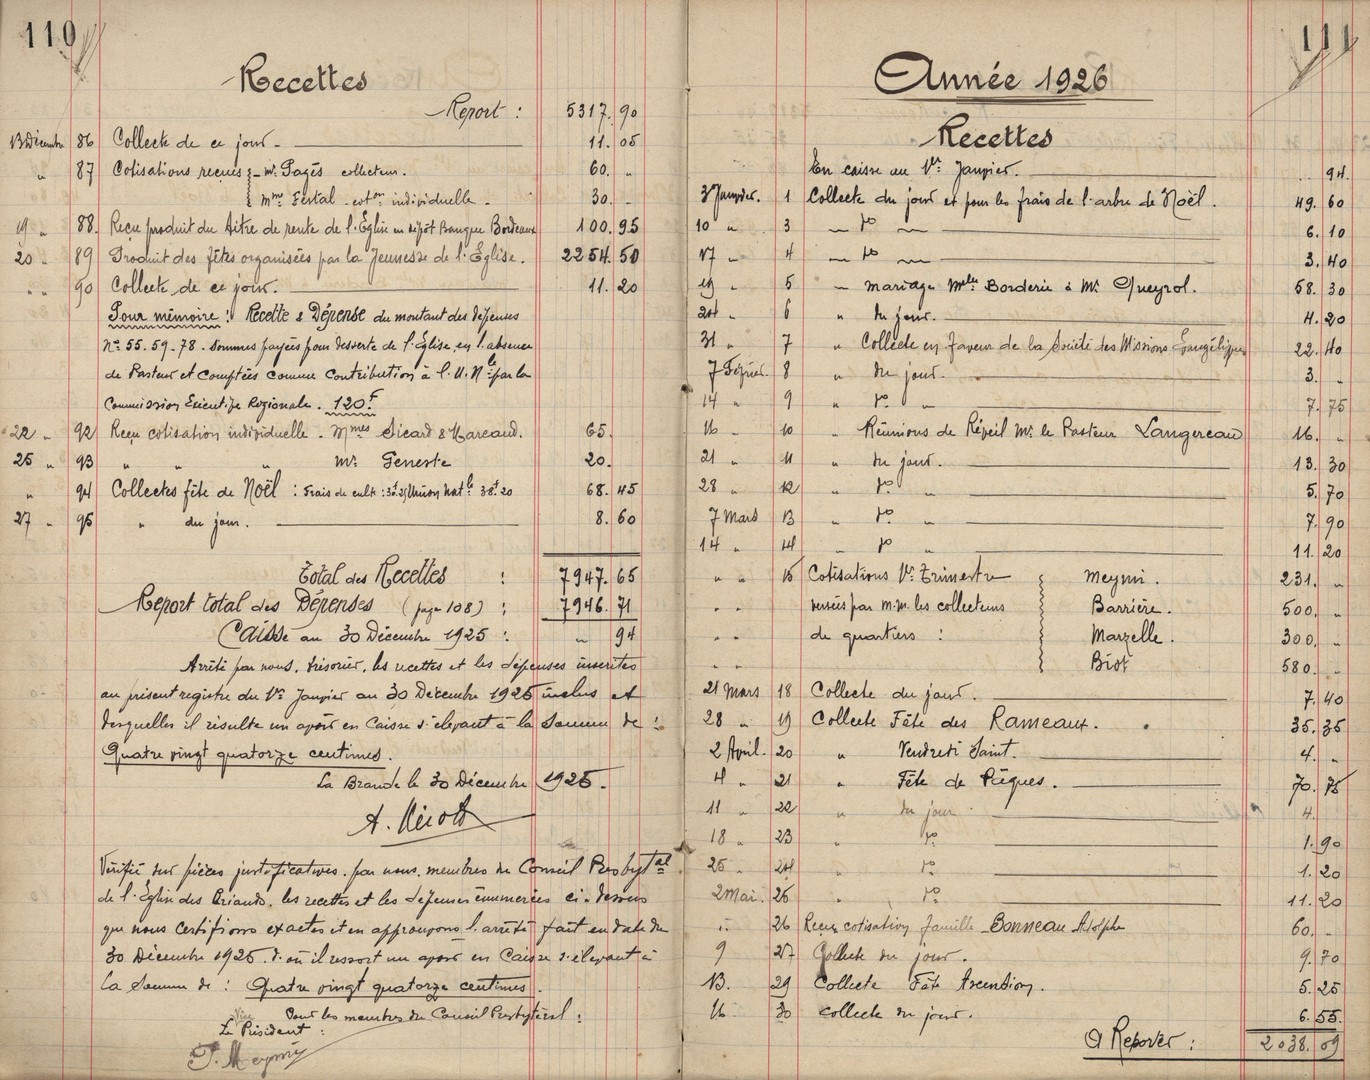 110
Recettes
Report : 5317. 90
13 Décembre 86 Collecte de ce jour. 11. 05
" 87 Cotisations reçues - Mr. Pagès collecteur. 60. "
Mme Fertal - coton individuelle. 30. "
19 " 88. Reçu produit du titre de rente de l'Eglise en dépôt Banque Bordeaux 100. 95
20 " 89 Produit des fêtes organisées par la Jeunesse de l'Eglise. 2254. 50
" " 90 Collecte de ce jour. 11. 20
Pour mémoire : Recette & Dépense du montant des dépenses
Nos 55. 59. 78. Sommes payées pour desserte de l'Eglise en l'absence
de Pasteur et comptées comme contribution à l'U. Nle par la
Commission Exécutive Régionale. 120f.
22 " 92 Reçu cotisation individuelle. Mmes Sicard & Marcaud. 65.
25 " 93 " " " Mr. Geneste 20.
" 94 Collectes fête de Noël : frais de culte : 30f 25 Union Natle 38f 20 68. 45
27 " 95 " du jour. 8. 60
Total des Recettes : 7947. 65
Report total des Dépenses (page 108) : 7946. 71
Caisse au 30 Décembre 1925 : " 94
Arrêté par nous, trésorier, les recettes et les dépenses inscrites
au présent registre du 1er Janvier au 30 Décembre 1925 inclus et
desquelles il résulte un avoir en caisse s'élevant à la somme de :
Quatre vingt quatorze centimes.
La Brande le 30 Décembre 1925.
Vérifié sur pièces justificatives, par nous, membres du Conseil Presbytal
de l'Eglise des Briands, les recettes et les dépenses énumérées ci-dessus
que nous certifions exactes et en approuvons l'arrêté fait en date du
30 Décembre 1925. d'où il ressort un avoir en Caisse s'élevant à
la somme de : Quatre vingt quatorze centimes.
Pour les membres du Conseil Presbytéral :
Le Vice Président :
P. Meynri
111
Année 1926
Recettes
En caisse au 1er Janvier. " 94.
3 Janvier. 1 Collecte du jour et pour les frais de l'arbre de Noël. 49. 60
10 " 3 " do " 6. 10
17 " 4 " do " 3. 40
19 " 5 " mariage Mlle Borderie à Mr. Queyrol. 58. 30
24 " 6 " du jour. 4. 20
31 " 7 " Collecte en faveur de la Société des Missions Evangéliques 22. 40
7 Février 8 " du jour. 3. "
14 " 9 " do " 7. 75
16 " 10 " Réunions de Réveil Mr. le Pasteur Langereau 16. "
21 " 11 " du jour. 13. 30
28 " 12 " do " 5. 70
7 Mars 13 " do " 7. 90
14 " 14 " do " 11. 20
" " 15 Cotisations 1er Trimestre Meynri. 231. "
" " versées par M.M. les collecteurs Barrière. 500. "
" " de quartiers : Marzelle. 300. "
" " Biot 580. "
21 Mars 18 Collecte du jour. 7. 40
28 " 19 Collecte Fête des Rameaux. 35. 35
2 Avril. 20 " Vendredi Saint. 4. "
4 " 21 " Fête de Pâques. 70. 75
11 " 22 " du jour 4.
18 " 23 " do 1. 90
25 " 24 " do 1. 20
2 Mai. 25 " do " 11. 20
" 26 Reçu cotisation famille Bonneau Adolphe 60. "
9 27 Collecte du jour. 9. 70
13. 29 Collecte Fête Ascension. 5. 25
16 30 collecte du jour. 6. 55.
A Reporter : 2038. 09